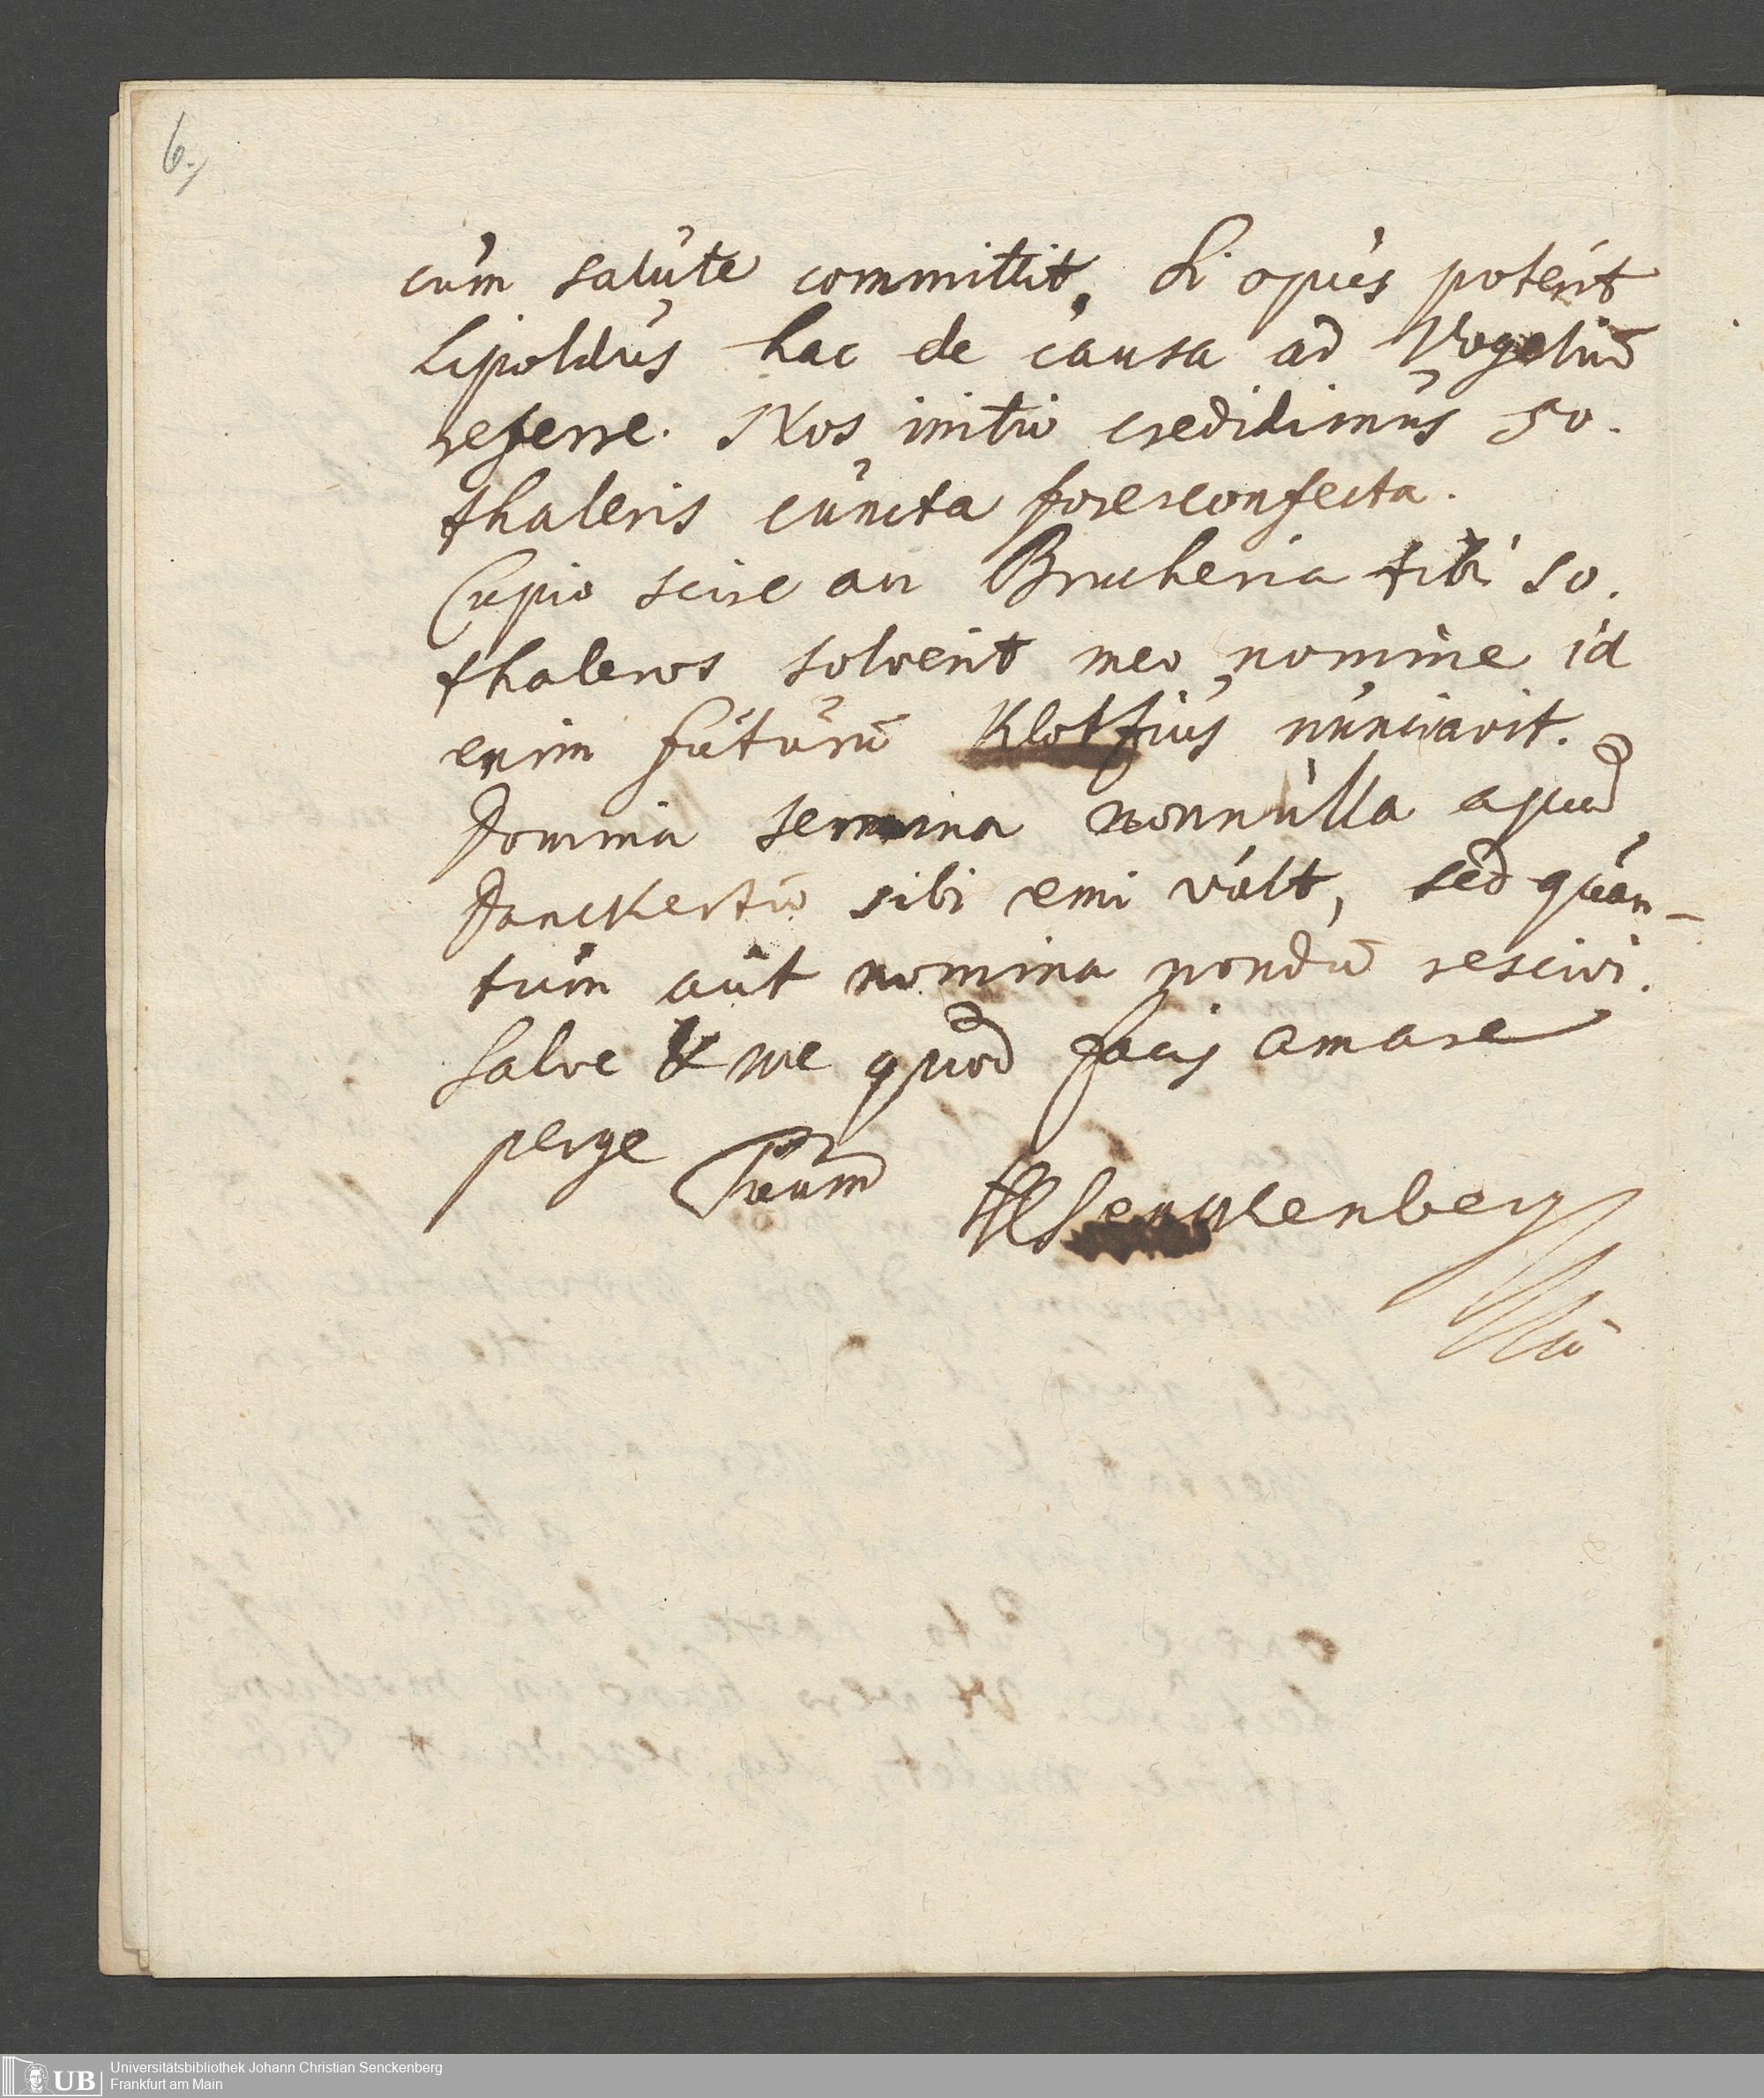 6.)
cum salute committit. Si opus poterit
Lipoldus hac de causa ad Vogeliū
referre. Nos initio credidimus 50.
thaleris cuncta fore confecta.
Cupio scire an Brucheria tibi 50.
thaleros solverit meo nomine id
enim futurū Klotzius nunciavit.
Domina semina nonnulla apud
Danckertū sibi emi vult, sed quan-
tum aut nomina nondū rescivi.
Salve & me quod facis amare
perge Tuum
HCSenckenberg
UB
Universitätsbibliothek Johann Christian Senckenberg
Frankfurt am Main